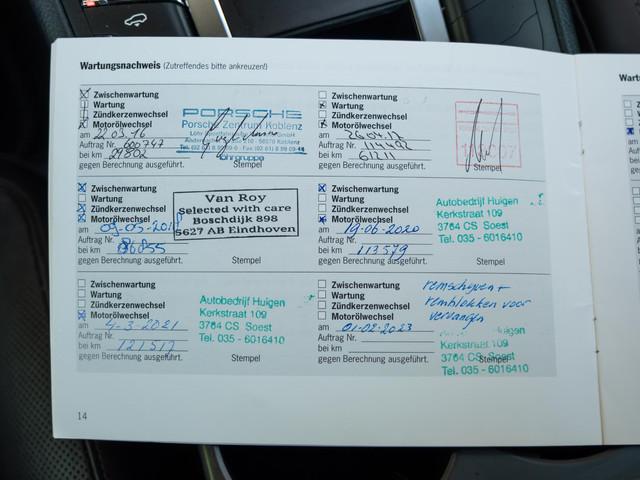 Wartungsnachweis (Zutreffendes bitte ankreuzen!)
Zwischenwartung
Wartung
Zündkerzenwechsel
Motorölwechsel
am 22.03.16
Auftrag Nr. 600747
bei km 29802
gegen Berechnung ausgeführt.
PORSCHE
Porsche Zentrum Koblenz
Stempel
Zwischenwartung
Wartung
Zündkerzenwechsel
Motorölwechsel
am 26.04.17
Auftrag Nr. 114492
bei km 61211
gegen Berechnung ausgeführt.
Stempel
Zwischenwartung
Wartung
Zündkerzenwechsel
Motorölwechsel
am
Auftrag Nr.
bei km 86855
gegen Berechnung ausgeführt.
Van Roy
Selected with care
Boschdijk 898
5627 AB Eindhoven
Zwischenwartung
Wartung
Zündkerzenwechsel
Motorölwechsel
am 19-06-2020
Auftrag Nr.
bei km 113579
gegen Berechnung ausgeführt.
Autobedrijf Huigen
Kerkstraat 109
3764 CS Soest
Tel. 035 - 6016410
Stempel
Zwischenwartung
Wartung
Zündkerzenwechsel
Motorölwechsel
am 4-3-2021
Auftrag Nr.
bei km 121517
gegen Berechnung ausgeführt.
Autobedrijf Huigen
Kerkstraat 109
3764 CS Soest
Tel. 035 - 6016410
Stempel
Zwischenwartung
Wartung
Zündkerzenwechsel
Motorölwechsel
am 01-02-2023
Auftrag Nr.
bei km
gegen Berechnung ausgeführt.
remschijven +
remblokken voor
vervangen
Huigen
Kerkstraat 109
3764 CS Soest
Tel. 035 - 6016410
Stempel
14